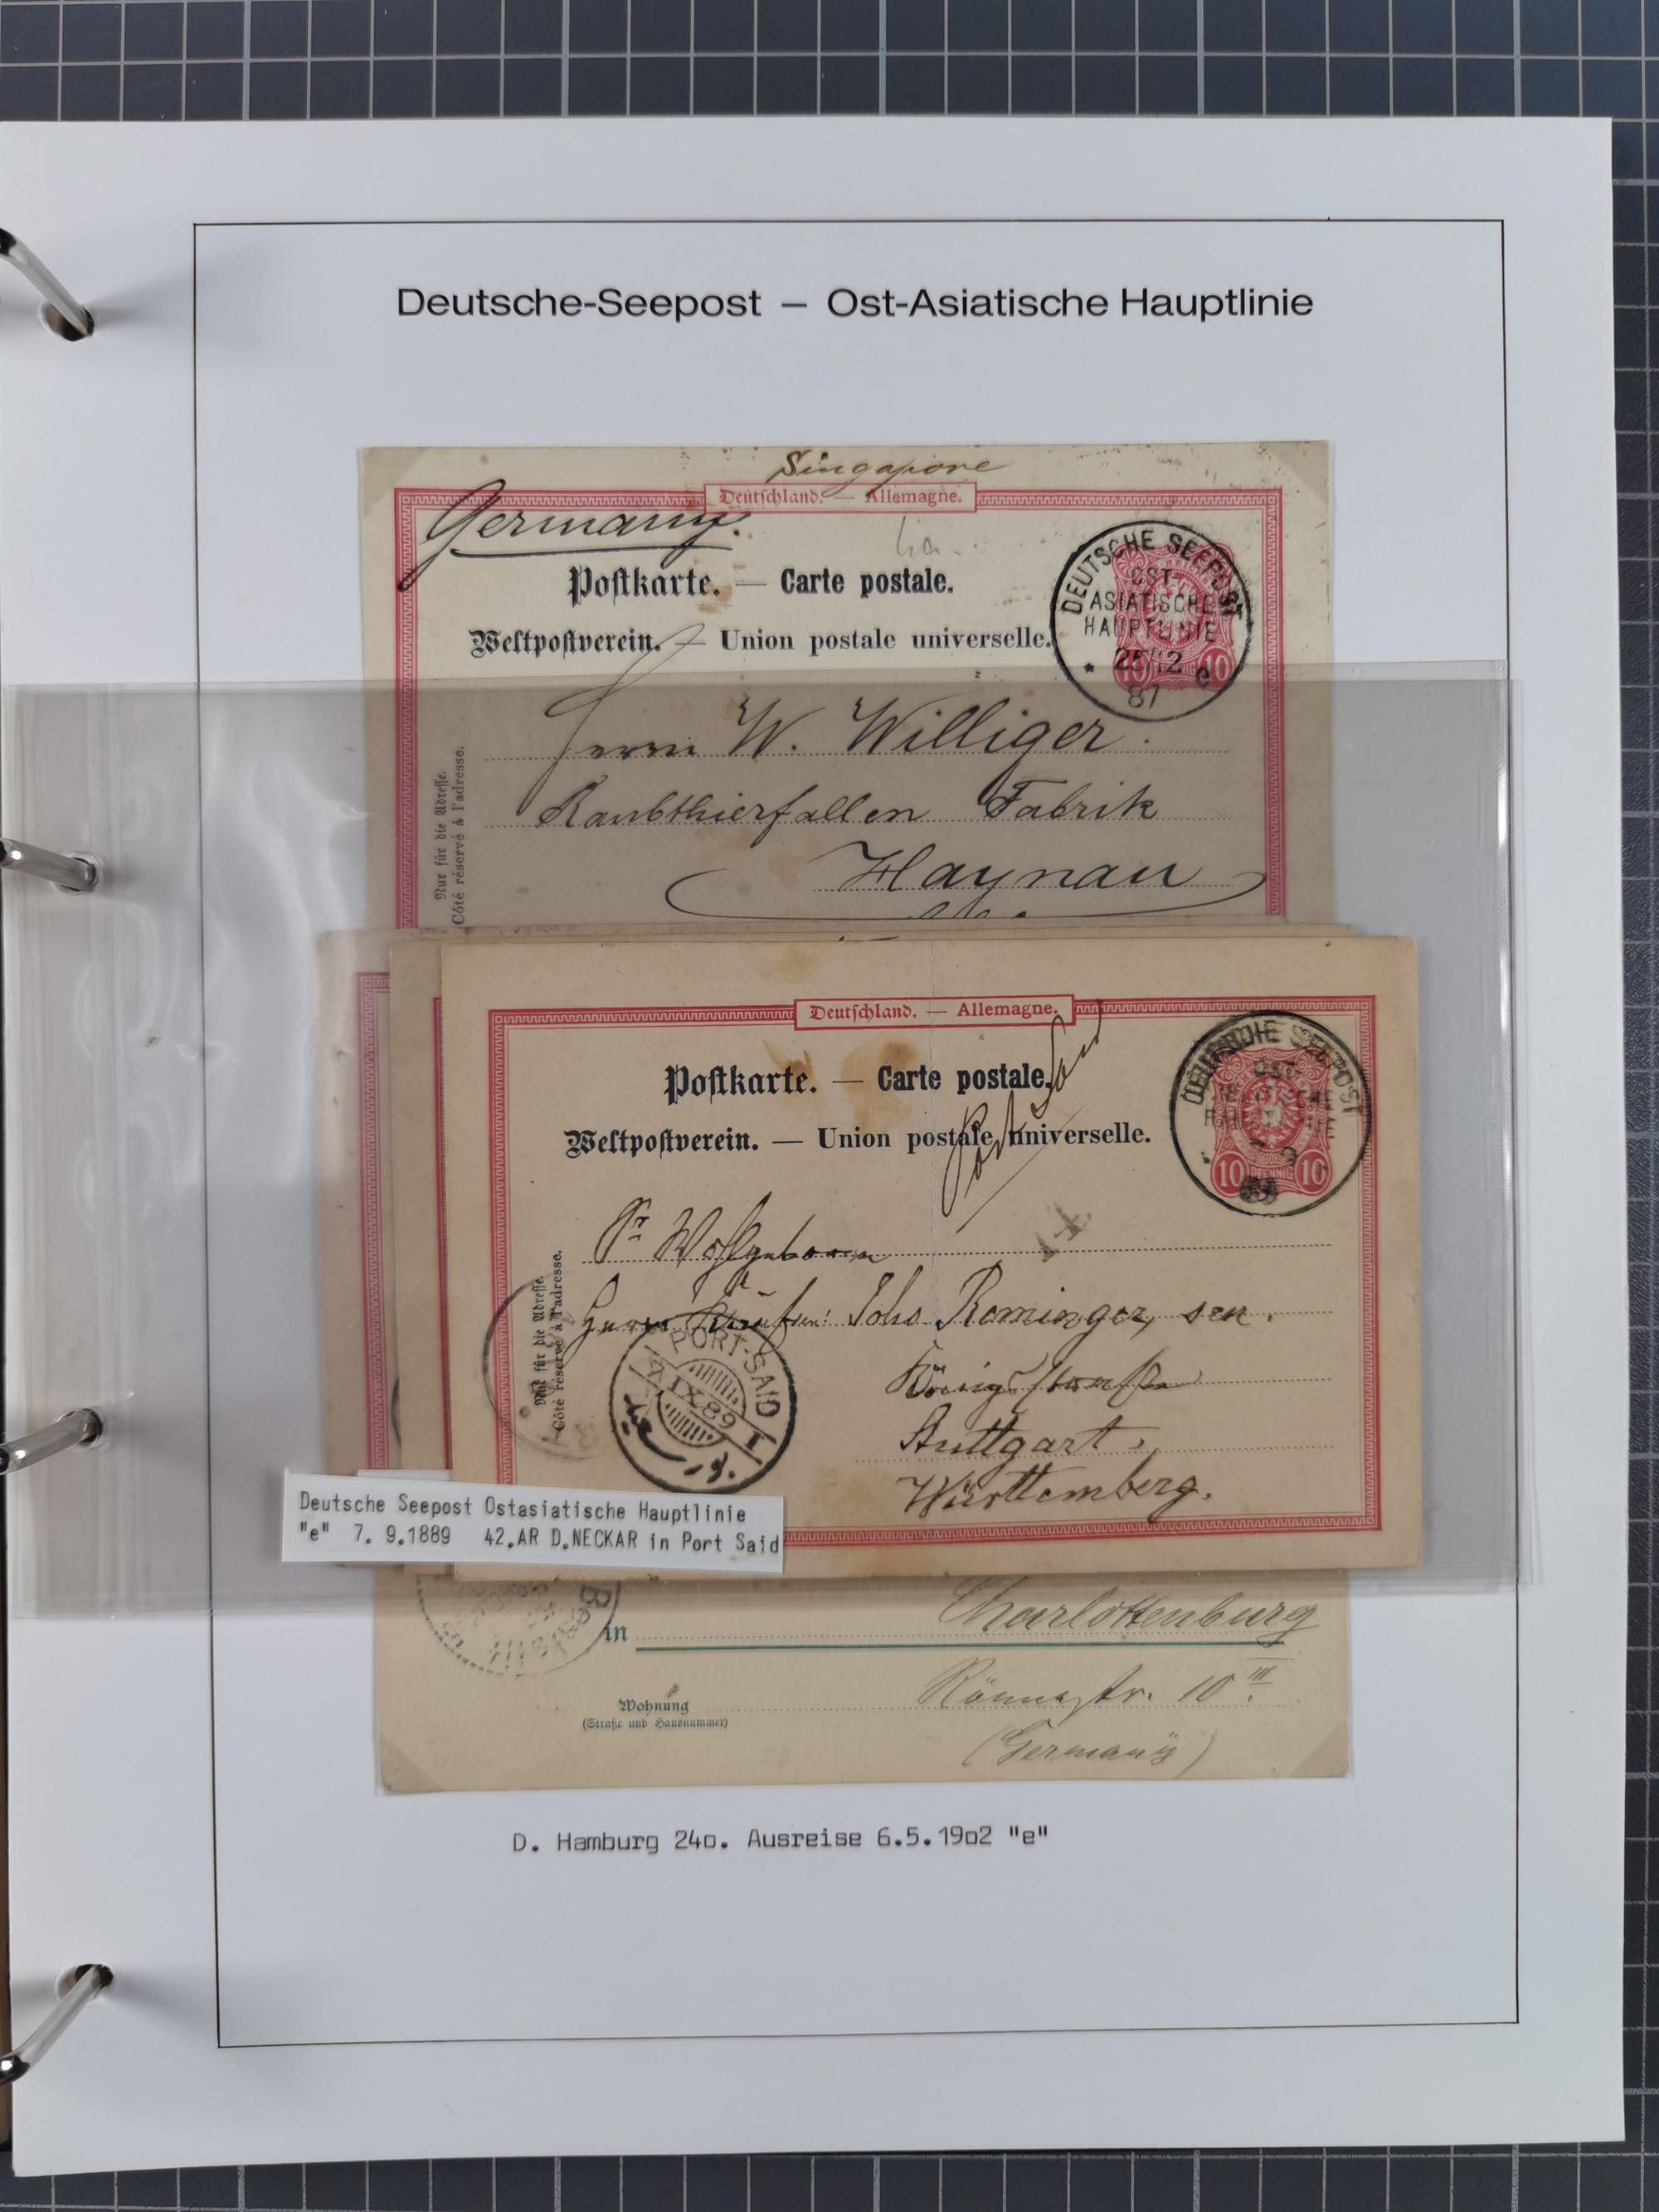 Deutsche-Seepost – Ost-Asiatische Hauptlinie
Singapore
Deutschland. — Allemagne.
Germany.
Postkarte. — Carte postale.
Weltpostverein. — Union postale universelle.
DEUTSCHE SEEPOST
OST-
ASIATISCHE
HAUPTLINIE
25/12
87
e
10 10
Herrn W. Williger.
Raubthierfallen Fabrik
Haynau
Nur für die Adresse.
Côté réservé à l'adresse.
Deutschland. — Allemagne.
Postkarte. — Carte postale.
Weltpostverein. — Union postale universelle.
Port Said
DEUTSCHE SEEPOST
OST-
10 PFENNIG 10
14
Sr Wohlgeboren
Herrn Johs Rominger, sen.
Königstraße
Stuttgart,
Württemberg.
Nur für die Adresse.
Côté réservé à l'adresse.
PORT-SAID
IX 89
I
Deutsche Seepost Ostasiatische Hauptlinie
"e" 7. 9.1889 42.AR D.NECKAR in Port Said
in Charlottenburg
Wohnung
(Straße und Hausnummer)
10 III.
(Germany)
D. Hamburg 24o. Ausreise 6.5.19o2 "e"